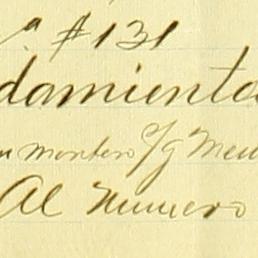 a #131
damiento
n montero c/g Men
Al Numero